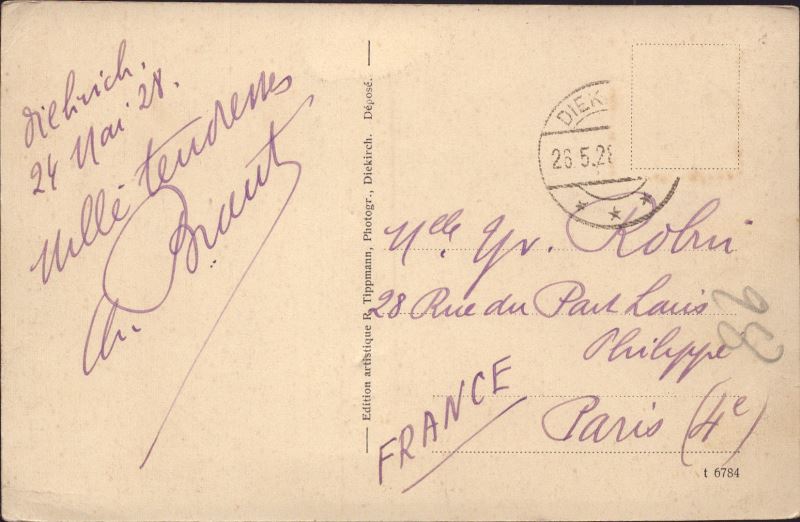 Diekirch.
24 Mai 28.
Mille tendresses
Ch. Briant
Edition artistique R. Tippmann, Photogr., Diekirch. Déposé.
DIEK
26.5.28
Mlle. Yv. Robin
28 Rue du Pont Louis
Philippe
Paris (4e)
FRANCE
t 6784